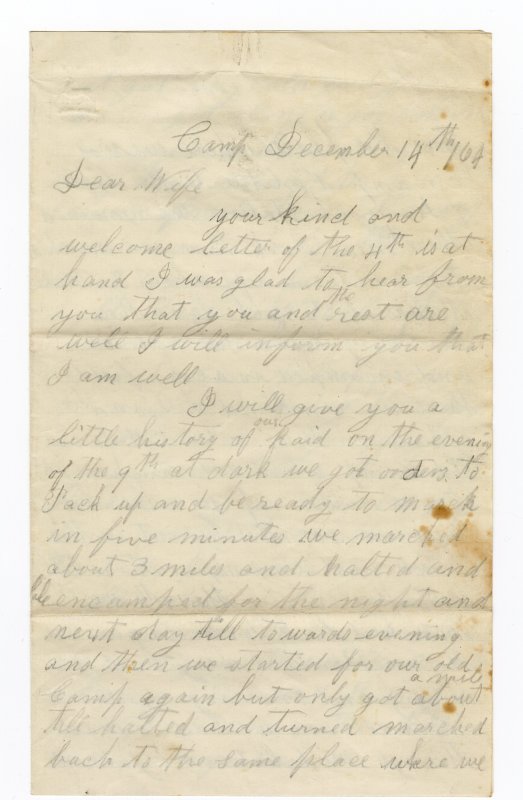 Camp December 14th/64
Dear Wife
your kind and
welcome letter of the 4th is at
hand I was glad to hear from
you that you and the rest are
well I will inform you that
I am well
I will give you a
little history of our Raid on the evening
of the 9th at dark we got orders to
Pack up and be ready to march
in five minutes we marched
about 3 miles and halted and
encamped for the night and
next day till towards evening
and then we started for our old
Camp again but only got about a mile
till halted and turned marched
back to the same place where we